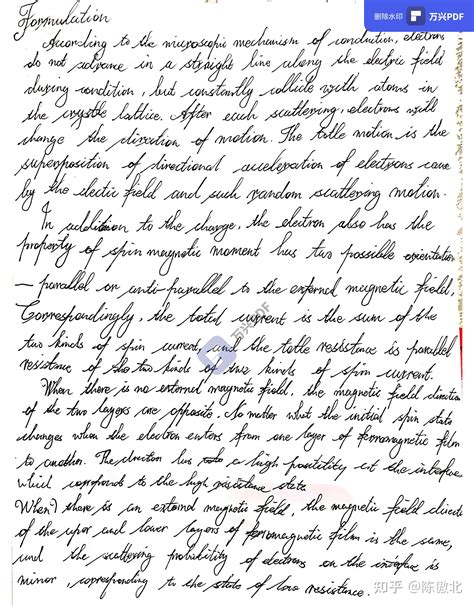 删除水印 万兴PDF
Formulation
According to the microscopic mechanism of condution, electrons
do not advance in a straight line along the electric field
during condition, but constantly collide with atoms in
the crystle lattice. After each scattering, electrons will
change the direction of motion. The totle motion is the
superposition of directional acceleration of electrons
by the electic field and such random scattering motion.
In addition to the charge, the electron also has the
property of spin magnetic moment has two possible orientation
— parallel or anti-parallel to the external magnetic field.
Correspondingly, the total current is the sum of the
two kinds of spin current, and the totle resistance is parallel
resistance of the two kinds of two kinds of spin current.
When there is no external magnetic field, the magnetic field direction
of the two layers are opposite. No matter what the initial spin state
changes when the electron enters from one layer of ferromagnetic film
to another. The has a high at the interface
which to the high resistance state
When there is an external magnetic field, the magnetic field
of the and lower layers of ferromagnetic film is the same,
and the scattering probability of electrons on the interface is
minor, corresponding to the state of low resistance.
万兴PDF
知乎 @陈傲北